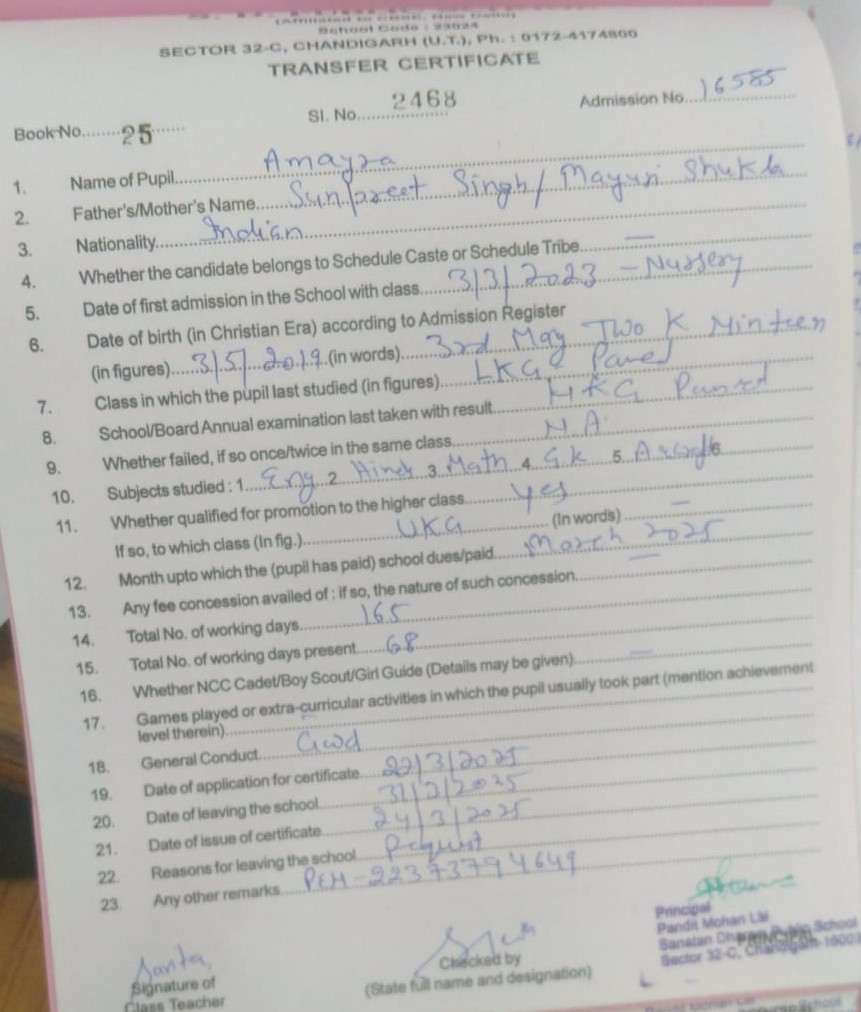 (Affiliated to CBSE, New Delhi)
School Code : 23024
SECTOR 32-C, CHANDIGARH (U.T.), Ph. : 0172-4174800
TRANSFER CERTIFICATE
Book No........25...... Sl. No. 2468 Admission No. 16585
1. Name of Pupil Amayra
2. Father's/Mother's Name Sunpreet Singh/ Mayuri Shukla
3. Nationality Indian
4. Whether the candidate belongs to Schedule Caste or Schedule Tribe —
5. Date of first admission in the School with class 3/3/2023 - Nursery
6. Date of birth (in Christian Era) according to Admission Register
(in figures) 3/5/2019 (in words) 3rd May Two K Ninteen
7. Class in which the pupil last studied (in figures) LKG
8. School/Board Annual examination last taken with result
9. Whether failed, if so once/twice in the same class N.A.
10. Subjects studied : 1 Eng 2 Hindi 3 Math 4 G.K 5 6
11. Whether qualified for promotion to the higher class Yes
If so, to which class (In fig.) UKG (In words) —
12. Month upto which the (pupil has paid) school dues/paid March 2025
13. Any fee concession availed of : if so, the nature of such concession. —
14. Total No. of working days 165
15. Total No. of working days present 68
16. Whether NCC Cadet/Boy Scout/Girl Guide (Details may be given) —
17. Games played or extra-curricular activities in which the pupil usually took part (mention achievement
level therein)
18. General Conduct Good
19. Date of application for certificate 22/3/2025
20. Date of leaving the school
21. Date of issue of certificate 24/3/2025
22. Reasons for leaving the school Request
23. Any other remarks PEN-22373794649
Signature of
Class Teacher
Checked by
(State full name and designation)
Principal
Pandit Mohan Lal
Sanatan Dharam Public School
Sector 32-C, Chandigarh-16003
PRINCIPAL